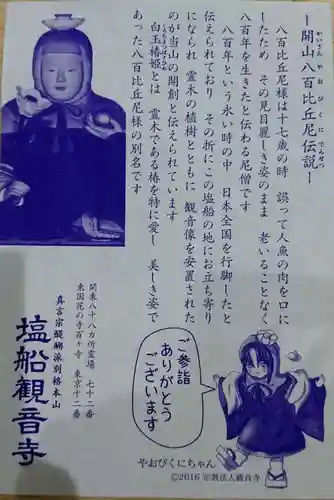 かいさんやおびくにでんせつ
―開山八百比丘尼伝説―
八百比丘尼様は十七歳の時　誤って人魚の肉を口に
したため　その見目麗しき姿のまま　老いることなく
八百年を生きたと伝わる尼僧です
八百年という永い時の中　日本全国を行脚したと
伝えられており　その折にこの塩船の地にお立ち寄り
になられ　霊木の植樹とともに　観音像を安置された
のが当山の開創と伝えられています
しらたまつばきひめ
白玉椿姫とは　霊木である椿を特に愛し　美しき姿で
あった八百比丘尼様の別名です
関東八十八カ所霊場　七十二番
東国花の寺百ヶ寺　東京十二番
真言宗醍醐派別格本山
塩船観音寺
ご参詣
ありがとう
ございます
やおびくにちゃん
©2016 宗教法人観音寺